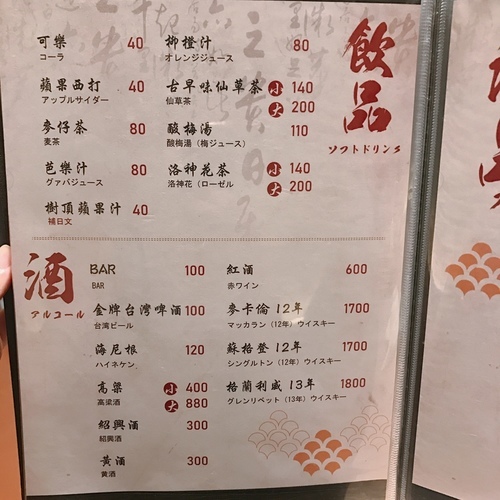 飲品
ソフトドリンク
可樂 40
コーラ
蘋果西打 40
アップルサイダー
麥仔茶 80
麦茶
芭樂汁 80
グァバジュース
樹頂蘋果汁 40
補日文
柳橙汁 80
オレンジジュース
古早味仙草茶 小 140
仙草茶 大 200
酸梅湯 110
酸梅湯（梅ジュース）
洛神花茶 小 140
洛神花（ローゼル 大 200
酒
アルコール
BAR 100
BAR
金牌台灣啤酒 100
台湾ビール
海尼根 120
ハイネケン
高粱 小 400
高梁酒 大 880
紹興酒 300
紹興酒
黃酒 300
黄酒
紅酒 600
赤ワイン
麥卡倫 12年 1700
マッカラン（12年）ウイスキー
蘇格登 12年 1700
シングルトン（12年）ウイスキー
格蘭利威 13年 1800
グレンリベット（13年）ウイスキー